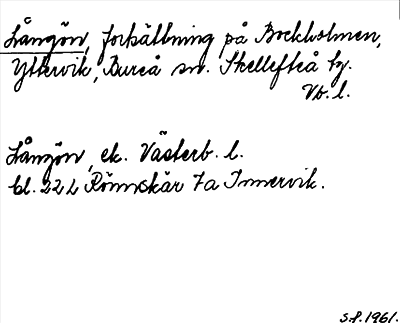 Långön, fortsättning på Bockholmen,
Yttervik, Bureå sn. Skellefteå tg.
Vb. l.
Långön, ek. Västerb. l.
bl. 22 L Rönnskär 7a Innervik.
S.P. 1961.